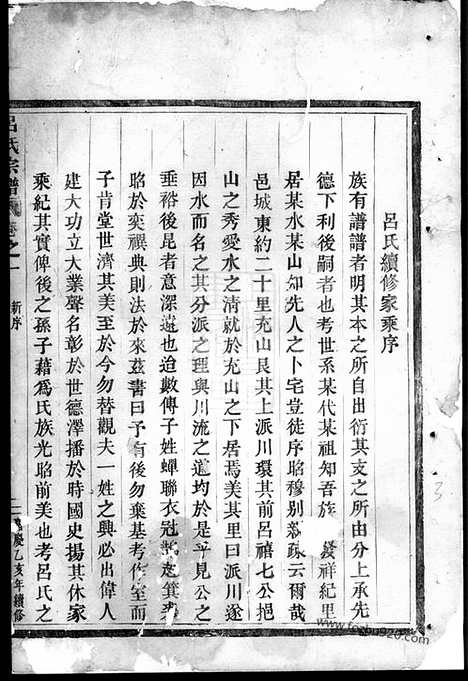 呂氏續修家乘序
族有譜譜者明其本之所自出衍其支之所由分上承先
德下利後嗣者也考世系某代某祖知吾族發祥紀里
居某水某山知先人之卜宅豈徒序昭穆別親疎云爾哉
邑城東約二十里充山艮其上派川環其前呂禧七公挹
山之秀愛水之清就於充山之下居焉美其里曰派川遂
因水而名之其分派之理與川流之道均於是乎見公之
垂裕後昆者意深遠也迨數傳子姓蟬聯衣冠 起箕裘
昭於奕禩典則法於來茲書曰予有後勿棄基考作室而
子肯堂世濟其美至於今勿替觀夫一姓之興必出偉人
建大功立大業聲名彰於世德澤播於時國史揚其休家
乘紀其實俾後之孫子藉為氏族光昭前美也考呂氏之
呂氏宗譜 卷之一 新序
一 慶乙亥年續修
3
www.fozhu920.com